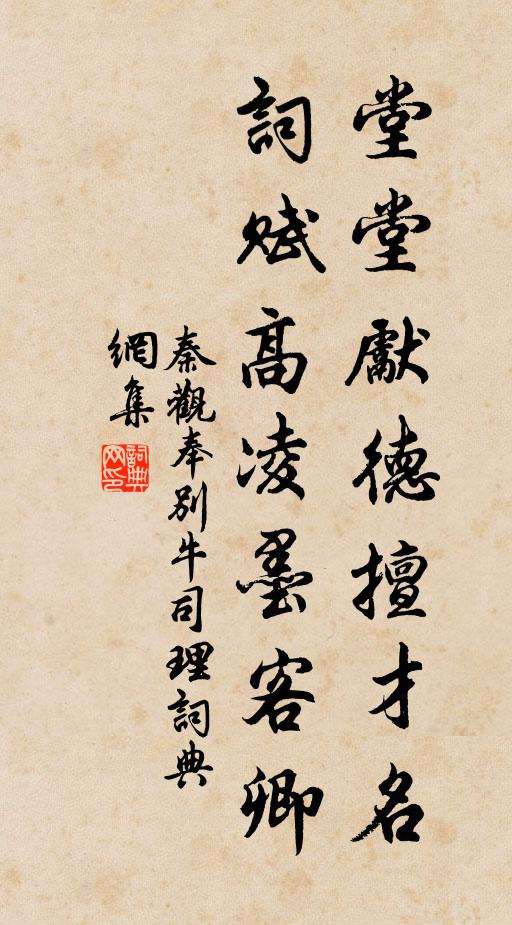 堂堂獻德擅才名
詞賦高凌墨客卿
秦觀奉別牛司理詞典
網集
詞典網印